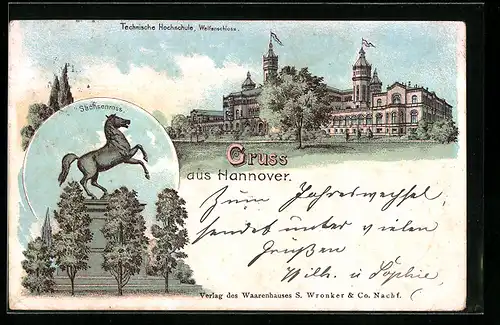 Technische Hochschule, Welfenschloss.
Sachsenross.
Gruss
aus Hannover.
Zum Jahreswechsel,
sendet unter vielen
Grüßen
Wilh. u Sophie
Verlag des Waarenhauses S. Wronker & Co. Nachf.